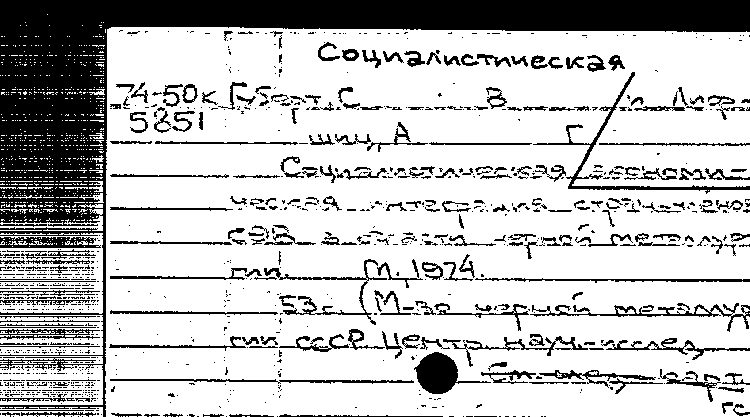 Социалистическая
74-50к Губерт, С В и Лифр-
5851 шиц, А Г
Социалистическая экономи-
ческая интеграция стран-членов
СЭВ в области черной металлур-
гии. М., 1974.
53с. (М-во черной металлур
гии СССР Центр. науч.-исслед
См. след. карт